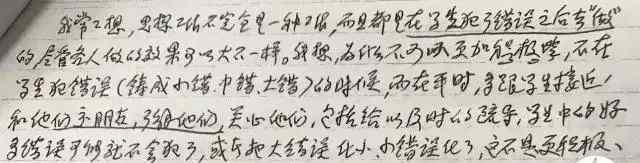 我常想,思想工作不完全是一种工作,而且都是在学生犯了错误之后去“做”
的,尽管各人做的效果可以大不一样。我想,为什么不可以更加积极些,不在
学生犯错误(铸成小错、中错、大错)的时候,而在平时,多跟学生接近,
和他们交朋友,了解他们,关心他们,包括给以及时的疏导,学生中的好
多错误可能就不会犯了,或者把大错误化小,小错误化了,这不是更积极、